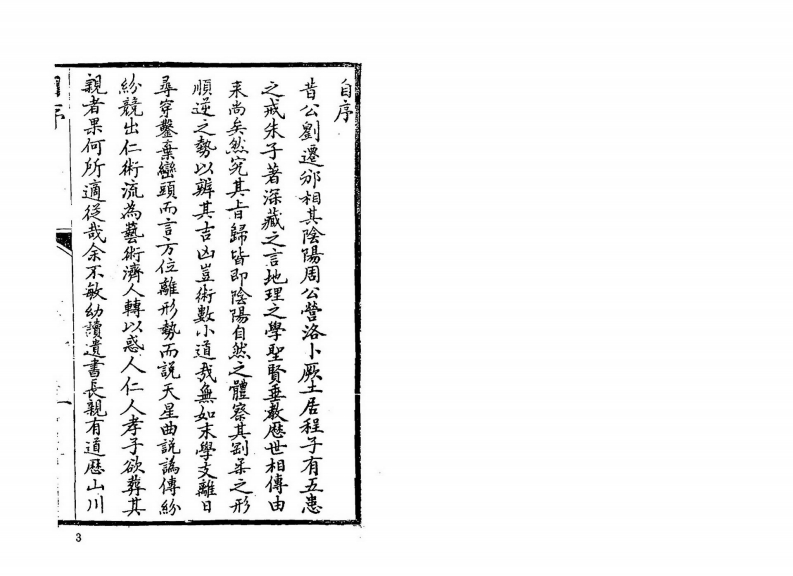 自序
昔公劉遷邠相其陰陽周公營洛卜厥土居程子有五患
之戒朱子著深藏之言地理之學聖賢垂教歷世相傳由
来尚矣然究其㫖歸皆即陰陽自然之體察其剛柔之形
順逆之勢以辨其吉凶豈術數小道哉無如末學支離日
尋穿鑿棄巒頭而言方位離形勢而說天星曲說譌傳紛
紛競出仁術流為藝術濟人轉以惑人仁人孝子欲葬其
親者果何所適從哉余不敏幼讀遺書長親有道歷山川
3